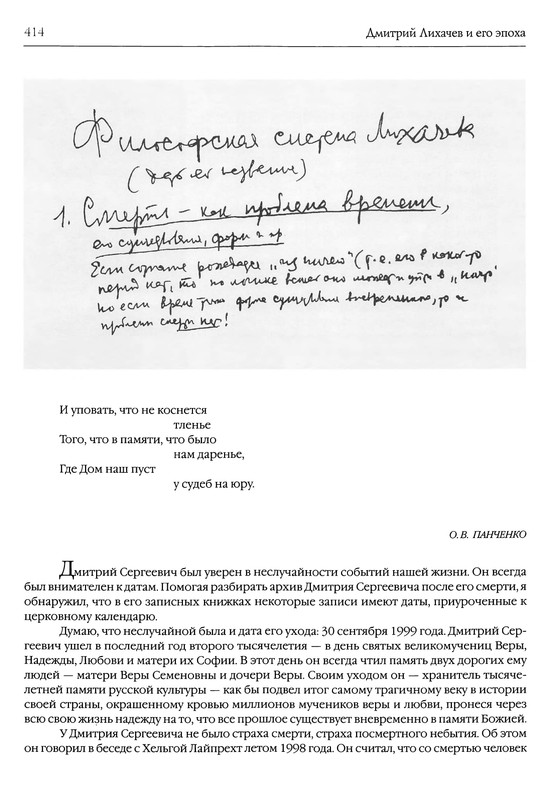 414
Дмитрий Лихачев и его эпоха
Философская система Лихачев
1. Смерть – как проблема времени,
его существования, форм и пр
Если сознание "из ничего" (т.е. его в какой-то
период нет, то по логике вещей оно может и уйти в "ничто"
но если время форма существования то и
проблемы смерти нет!
И уповать, что не коснется
тленье
Того, что в памяти, что было
нам даренье,
Где Дом наш пуст
у судеб на юру.
О. В. ПАНЧЕНКО
Дмитрий Сергеевич был уверен в неслучайности событий нашей жизни. Он всегда
был внимателен к датам. Помогая разбирать архив Дмитрия Сергеевича после его смерти, я
обнаружил, что в его записных книжках некоторые записи имеют даты, приуроченные к
церковному календарю.
Думаю, что неслучайной была и дата его ухода: 30 сентября 1999 года. Дмитрий Сер-
геевич ушел в последний год второго тысячелетия — в день святых великомучениц Веры,
Надежды, Любови и матери их Софии. В этот день он всегда чтил память двух дорогих ему
людей — матери Веры Семеновны и дочери Веры. Своим уходом он — хранитель тысяче-
летней памяти русской культуры — как бы подвел итог самому трагичному веку в истории
своей страны, окрашенному кровью миллионов мучеников веры и любви, пронеся через
всю свою жизнь надежду на то, что все прошлое существует вневременно в памяти Божией.
У Дмитрия Сергеевича не было страха смерти, страха посмертного небытия. Об этом
он говорил в беседе с Хельгой Лайпрехт летом 1998 года. Он считал, что со смертью человек